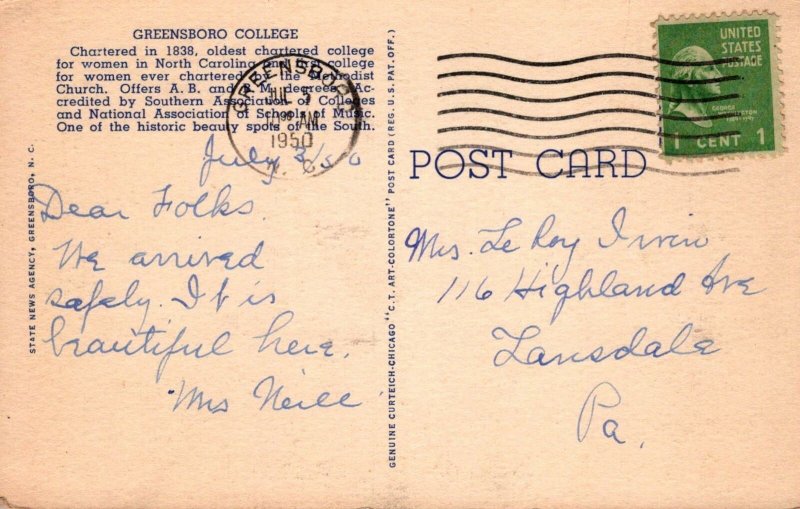 GREENSBORO COLLEGE
Chartered in 1838, oldest chartered college
for women in North Carolina and first college
for women ever chartered by the Methodist
Church. Offers A.B. and B.M. degrees. Ac-
credited by Southern Association of Colleges
and National Association of Schools of Music.
One of the historic beauty spots of the South.
GREENSBORO
JUL 5
AM
1950
N. C.
UNITED
STATES
POSTAGE
GEORGE
WASHINGTON
1 CENT 1
POST CARD
STATE NEWS AGENCY, GREENSBORO, N. C.
GENUINE CURTEICH-CHICAGO "C.T. ART-COLORTONE" POST CARD (REG. U.S. PAT. OFF.)
July 3/50
Dear Folks.
We arrived
safely. It is
beautiful here.
Mrs Neill
Mrs. Le Roy Irwin
116 Highland Ave
Lansdale
Pa.